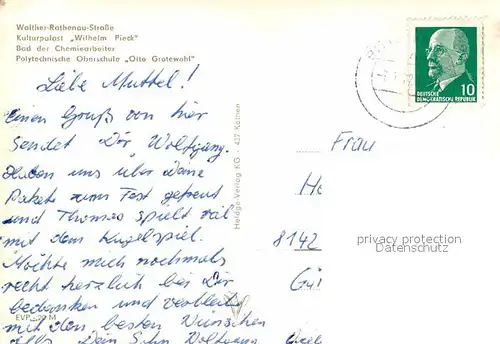 Walther-Rathenau-Straße
Kulturpalast „Wilhelm Pieck"
Bad der Chemiearbeiter
Polytechnische Oberschule „Otto Grotewohl"
Liebe Muttel!
Einen Gruß von hier
sendet Dir Wolfgang.
Haben uns über Deine
Pakete zum Fest gefreut
und Thomas spielt viel
mit dem Kugelspiel.
Möchte mich nochmals
recht herzlich bei Dir
bedanken und verbleibe
mit den besten Wünschen
alles Dein Sohn Wolfgang
EVP –,20 M
Heldge-Verlag KG · 437 Köthen
10
DEUTSCHE
DEMOKRATISCHE REPUBLIK
Frau
8142
privacy protection
Datenschutz